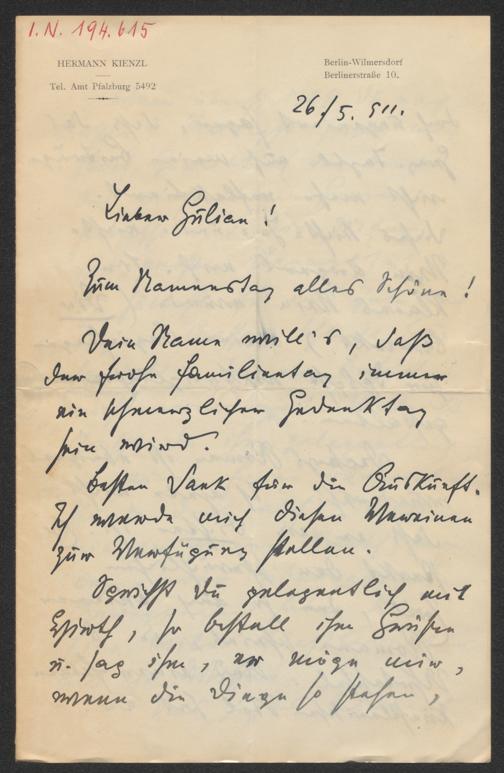 I.N. 194.615
HERMANN KIENZL
Tel. Amt Pfalzburg 5492
Berlin-Wilmersdorf
Berlinerstraße 10.
26/5. 911.
Lieber Gülian!
Zum Namenstag alles Schöne!
Dein Name will's, daß
der frohe Familientag immer
ein schmerzlicher Gedenktag
sein wird.
Besten Dank für die Auskunft.
Ich werde mich diesen Vereinen
zur Verfügung stellen.
Sprichst du gelegentlich mit
, so bestell ihm Grüßen
u. sag ihm, er möge mir,
wenn die Dinge so stehen,